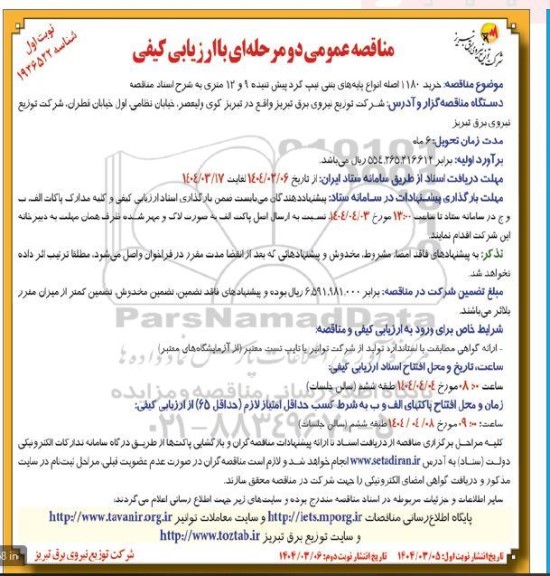 مناقصه عمومی دو مرحله‌ای با ارزیابی کیفی
نوبت اول
شناسه ۱۹۳۶۵۲۲
شرکت توزیع نیروی برق تبریز
موضوع مناقصه: خرید ۱۱۸۰ اصله انواع پایه‌های بتنی تیپ گرد پیش تنیده ۹ و ۱۲ متری به شرح اسناد مناقصه
دستگاه مناقصه‌گزار و آدرس: شرکت توزیع نیروی برق تبریز واقع در تبریز کوی ولیعصر، خیابان نظامی، اول خیابان قطران، شرکت توزیع
نیروی برق تبریز
مدت زمان تحویل: ۶ ماه
برآورد اولیه: برابر ۵۵۴,۲۶۵,۲۱۶۶۱۲ ریال می‌باشد.
مهلت دریافت اسناد از طریق سامانه ستاد ایران: از تاریخ ۱۴۰۴/۰۳/۰۶ لغایت ۱۴۰۴/۰۳/۱۷
مهلت بارگذاری پیشنهادات در سامانه ستاد: پیشنهاددهندگان می‌بایست ضمن بارگذاری اسناد ارزیابی کیفی و کلیه مدارک پاکات الف، ب
و ج در سامانه ستاد تا ساعت ۱۳:۰۰ مورخ ۱۴۰۴/۰۴/۰۳ نسبت به ارسال اصل پاکت الف به صورت لاک و مهر شده ظرف همان مهلت به دبیرخانه
این شرکت اقدام نمایند.
تذکر: به پیشنهادهای فاقد امضا، مشروط، مخدوش و پیشنهادهائی که بعد از انقضا مدت مقرر در فراخوان واصل می‌شود، مطلقا ترتیب اثر داده
نخواهد شد.
مبلغ تضمین شرکت در مناقصه: برابر ۶,۵۹۱,۹۸۱,۰۰۰ ریال بوده و پیشنهادهای فاقد تضمین، تضمین مخدوش، تضمین کمتر از میزان مقرر
بلااثر می‌باشند.
ParsNamadData
شرایط خاص برای ورود به ارزیابی کیفی و مناقصه:
- ارائه گواهی مطابقت با استاندارد تولید از شرکت توانیر یا تایپ تست معتبر (از آزمایشگاه‌های معتبر)
ساعت، تاریخ و محل افتتاح اسناد ارزیابی کیفی:
ساعت ۰۸:۰۰ مورخ ۱۴۰۴/۰۴/۰۴ طبقه ششم (سالن جلسات)
پایگاه اطلاع‌رسانی مناقصه و مزایده
زمان و محل افتتاح پاکتهای الف و ب به شرط کسب حداقل امتیاز لازم (حداقل ۶۵) از ارزیابی کیفی:
ساعت: ۰۹:۰۰ مورخ ۱۴۰۴/۰۴/۰۸ طبقه ششم (سالن جلسات)
۰۲۱-۸۸۳۴۹۶۷۰-۵
کلیه مراحل برگزاری مناقصه از دریافت اسناد تا ارائه پیشنهادات مناقصه‌گران و بازگشایی پاکت‌ها از طریق درگاه سامانه تدارکات الکترونیکی
دولت (ستاد) به آدرس www.setadiran.ir انجام خواهد شد و لازم است مناقصه‌گران در صورت عدم عضویت قبلی، مراحل ثبت‌نام در سایت
مذکور و دریافت گواهی امضای الکترونیکی را جهت شرکت در مناقصه محقق سازند.
سایر اطلاعات و جزئیات مربوطه در اسناد مناقصه مندرج بوده و سایت‌های زیر جهت اطلاع رسانی اعلام می‌گردند:
پایگاه اطلاع‌رسانی مناقصات http://iets.mporg.ir و سایت معاملات توانیر http://www.tavanir.org.ir
و سایت توزیع برق تبریز http://www.toztab.ir
تاریخ انتشار نوبت اول: ۱۴۰۴/۰۳/۰۵ تاریخ انتشار نوبت دوم: ۱۴۰۴/۰۳/۰۶
شرکت توزیع نیروی برق تبریز